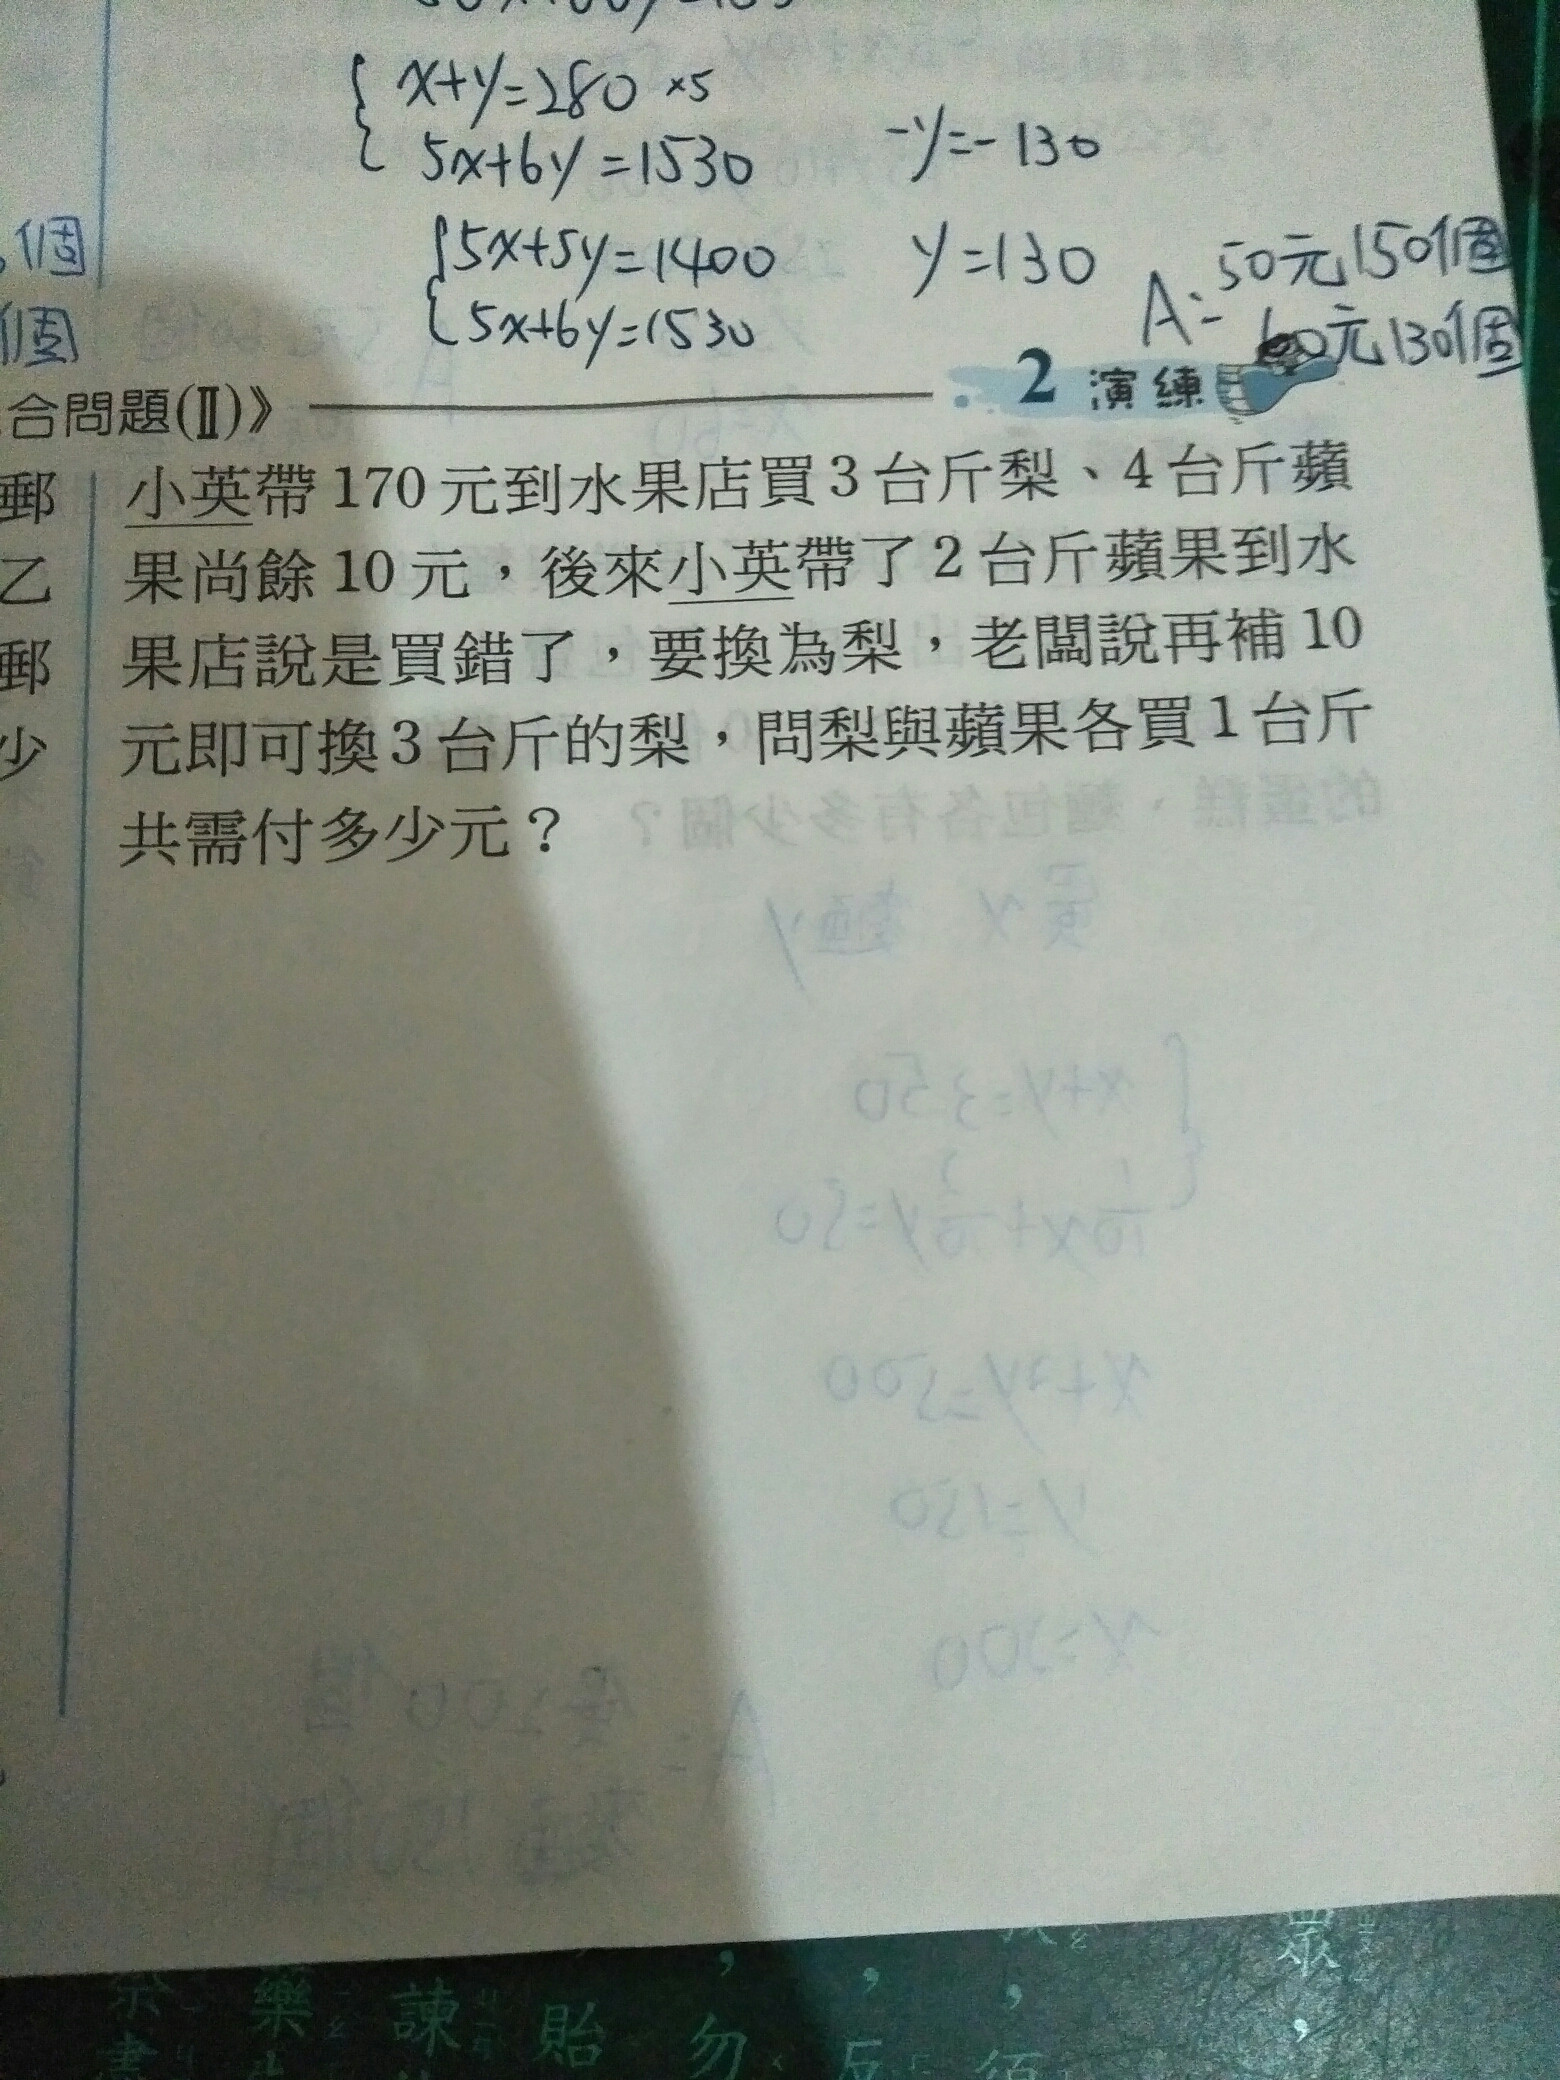 x+y=280 ×5
5x+6y=1530
-y=-130
5x+5y=1400
5x+6y=1530
y=130
A: 50元150個
60元130個
個
個
合問題(Ⅱ)》
2 演練
郵
乙
郵
少
小英帶170元到水果店買3台斤梨、4台斤蘋
果尚餘10元，後來小英帶了2台斤蘋果到水
果店說是買錯了，要換為梨，老闆說再補10
元即可換3台斤的梨，問梨與蘋果各買1台斤
共需付多少元？
的蛋糕、麵包各有多少個？
蛋x 麵y
x+y=350
y=150
樂
諫
貽
勿
反
須
眾